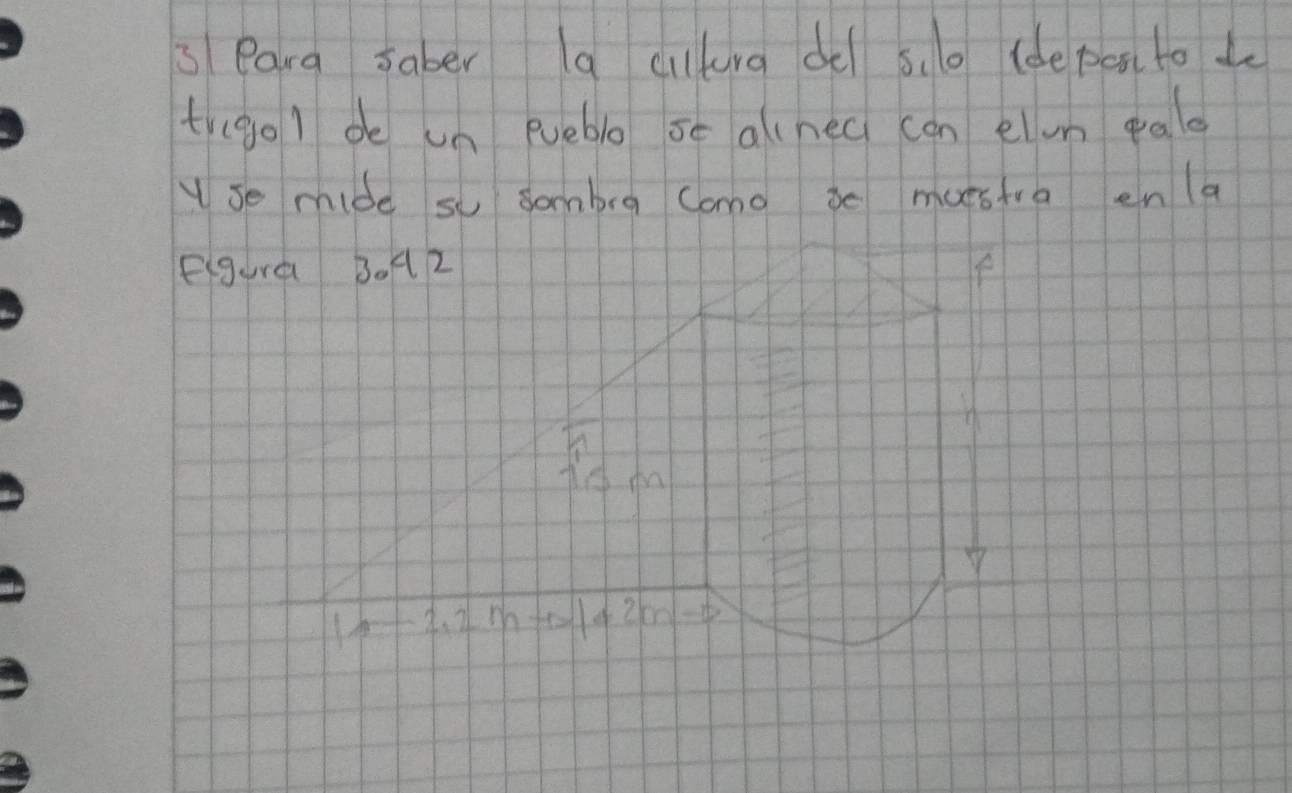 3) Para saber la altura del silo (deposito de
trigo) de un pueblo se alinea con el un palo
y se mide su sombra como se muestra en la
Figura 3.42
m
2.2 m 2m